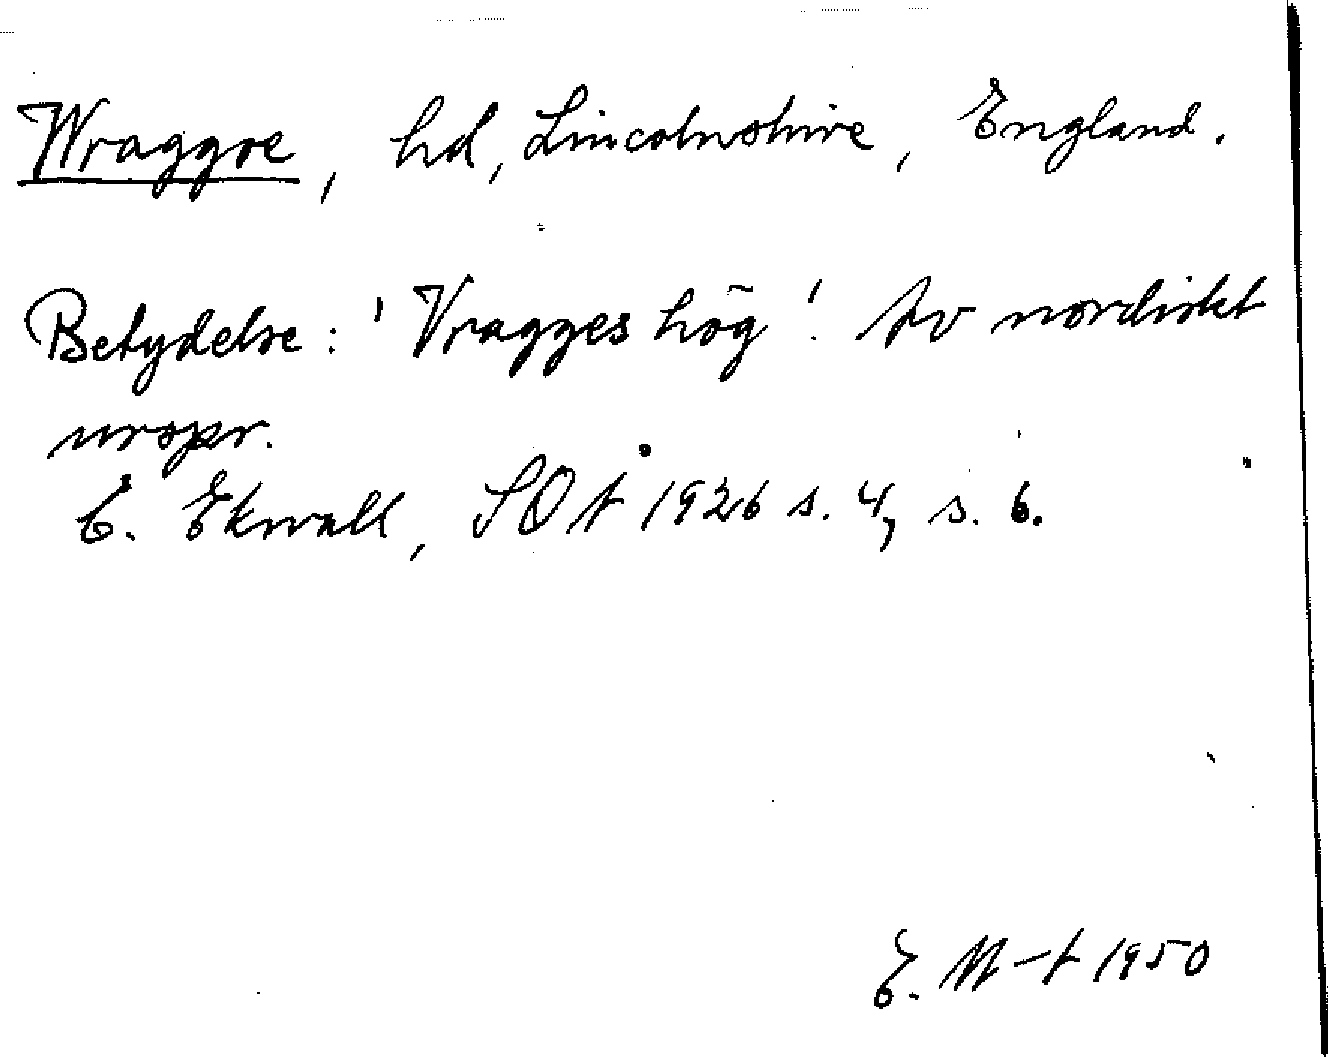 Wraggoe, hd, Lincolnshire, England.
Betydelse: 'Vragges hög'. Av nordiskt
urspr.
E. Ekwall, SOÅ 1926 s. 4, s. 6.
E. M-t 1950